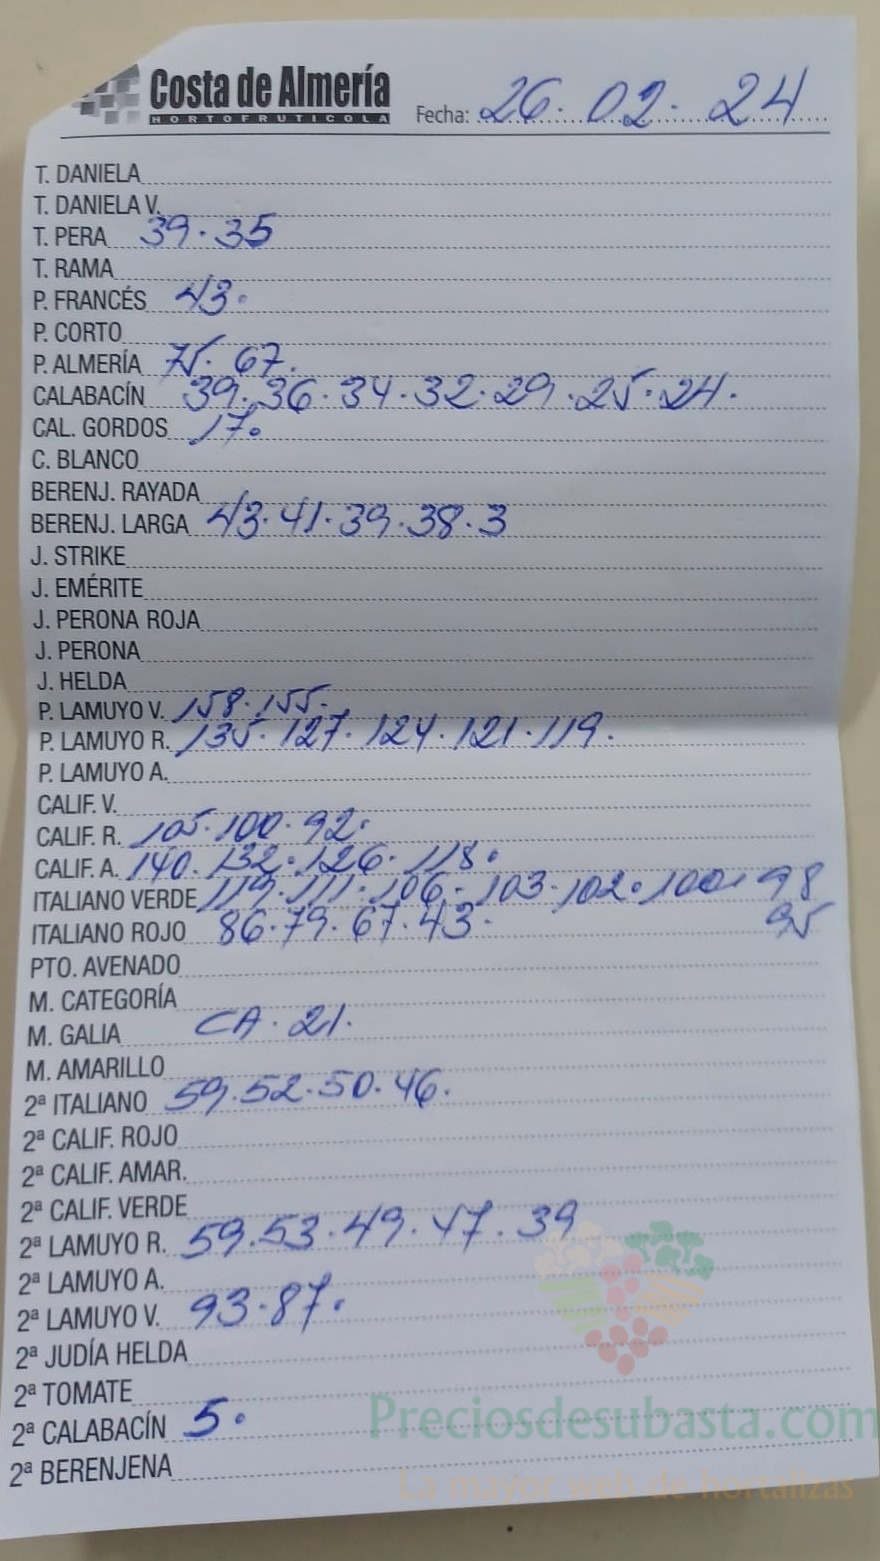 Costa de Almería
HORTOFRUTICOLA
Fecha: 26. 02. 24
T. DANIELA
T. DANIELA V.
T. PERA 39. 35
T. RAMA
P. FRANCÉS 43.
P. CORTO
P. ALMERÍA 75. 67.
CALABACÍN 39. 36. 34. 32. 29. 25. 24.
CAL. GORDOS 17.
C. BLANCO
BERENJ. RAYADA
BERENJ. LARGA 43. 41. 39. 38. 3
J. STRIKE
J. EMÉRITE
J. PERONA ROJA
J. PERONA
J. HELDA
P. LAMUYO V. 158. 155.
P. LAMUYO R. 135. 127. 124. 121. 119.
P. LAMUYO A.
CALIF. V.
CALIF. R. 105. 100. 92.
CALIF. A. 140. 132. 126. 118.
ITALIANO VERDE 119. 111. 106. 103. 102. 100. 98
95
ITALIANO ROJO 86. 79. 67. 43.
PTO. AVENADO
M. CATEGORÍA
M. GALIA CA. 21.
M. AMARILLO
2ª ITALIANO 59. 52. 50. 46.
2ª CALIF. ROJO
2ª CALIF. AMAR.
2ª CALIF. VERDE
2ª LAMUYO R. 59. 53. 49. 47. 39
2ª LAMUYO A.
2ª LAMUYO V. 93. 87.
2ª JUDÍA HELDA
2ª TOMATE
2ª CALABACÍN 5.
2ª BERENJENA
Preciosdesubasta.com
La mayor web de hortalizas